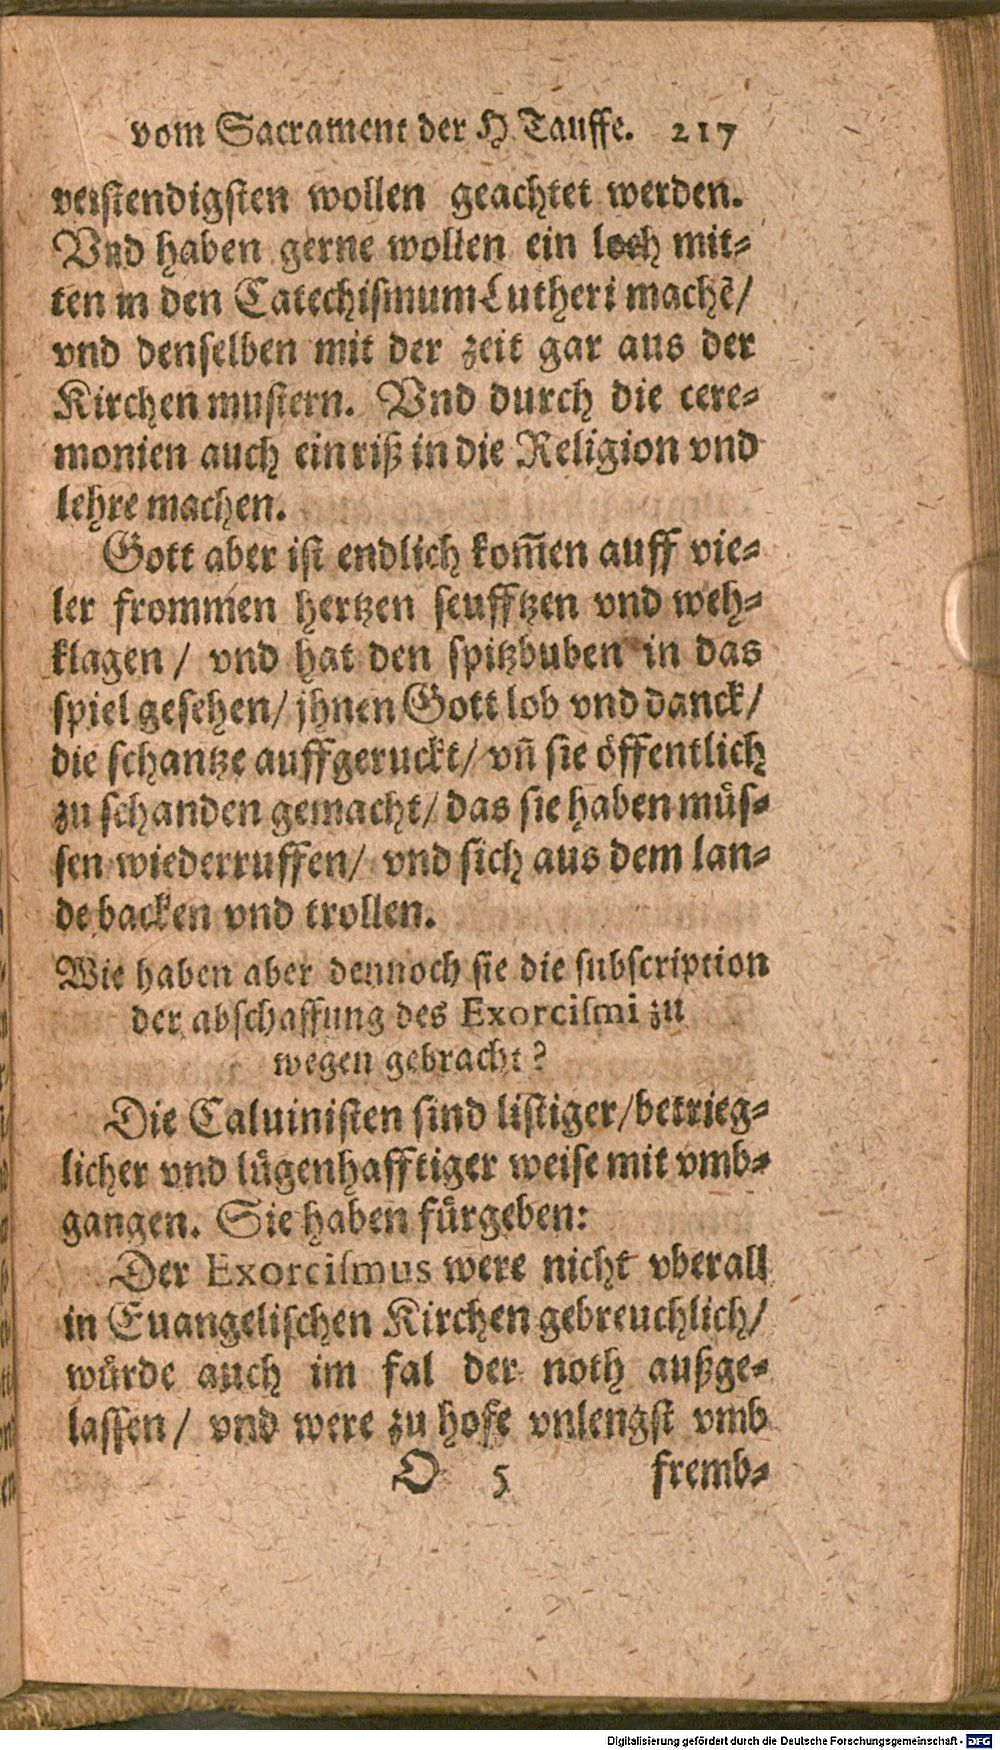 vom Sacrament der H Tauffe. 217
verstendigsten wollen geachtet werden.
Vnd haben gerne wollen ein loch mit-
ten in den Catechismum Lutheri machẽ/
vnd denselben mit der zeit gar aus der
Kirchen mustern. Vnd durch die cere-
monien auch ein riß in die Religion vnd
lehre machen.
Gott aber ist endlich kom̃en auff vie-
ler frommen hertzen seufftzen vnd weh-
klagen / vnd hat den spitzbuben in das
spiel gesehen/ jhnen Gott lob vnd danck/
die schantze auffgeruckt/ vñ sie öffentlich
zu schanden gemacht/ das sie haben müs-
sen wiederruffen/ vnd sich aus dem lan-
de backen vnd trollen.
Wie haben aber dennoch sie die subscription
der abschaffung des Exorcismi zu
wegen gebracht?
Die Caluinisten sind listiger/betrieg-
licher vnd lügenhafftiger weise mit vmb-
gangen. Sie haben fürgeben:
Der Exorcismus were nicht vberall
in Euangelischen Kirchen gebreuchlich/
würde auch im fal der noth außge-
lassen/ vnd were zu hofe vnlengst vmb
O 5 fremb-
Digitalisierung gefördert durch die Deutsche Forschungsgemeinschaft - DFG